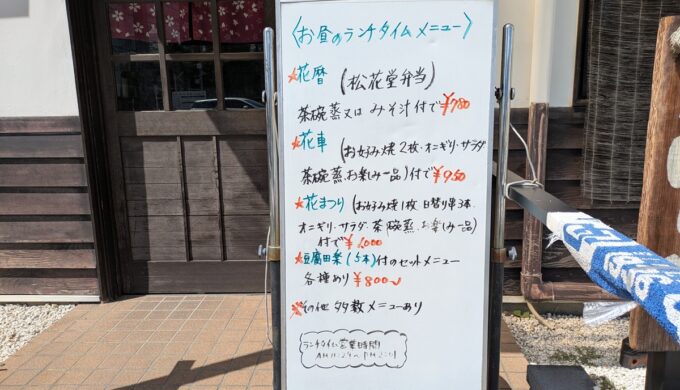 〈お昼のランチタイムメニュー〉
★花暦 (松花堂弁当)
茶碗蒸又は みそ汁付で¥780
★花車 (お好み焼2枚・オニギリ・サラダ
茶碗蒸、お楽しみ一品)付で¥950
★花まつり (お好み焼1枚 日替り串3本
オニギリ・サラダ・茶碗蒸、お楽しみ一品)
付で¥1,000
★豆腐田楽(5本)付のセットメニュー
各種あり¥800〜
※その他 多数メニューあり
ランチタイム営業時間